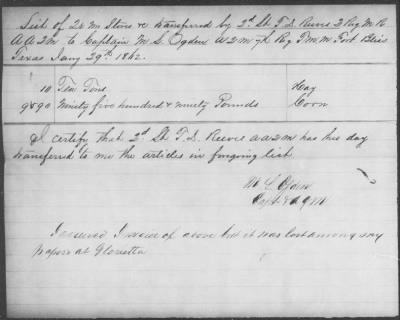 List of Q M Stores &c transferred by 2d Lt T. L. Reeve 2 Reg M R
A A Q M to Captain M. S. Ogden A Q M Reg T M M Fort Bliss
Texas Jany 29th 1862.
10 Ten Tons Hay
9890 Ninety five hundred & ninety Pounds Corn
I certify that 2d Lt T. L. Reeve a a Q M has this day
transferred to me the articles in forgoing list
Ogden
Capt & A Q M
I received Invoice of above but it was lost among my
papers at Glorietta